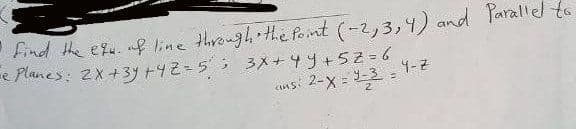 Find the equ. of line through the Point (-2,3,4) and Parallel to
e Planes: 2x+3y+4z=5 ; 3x+4y+5z=6
ans: 2-x = y-3/2 = 4-z